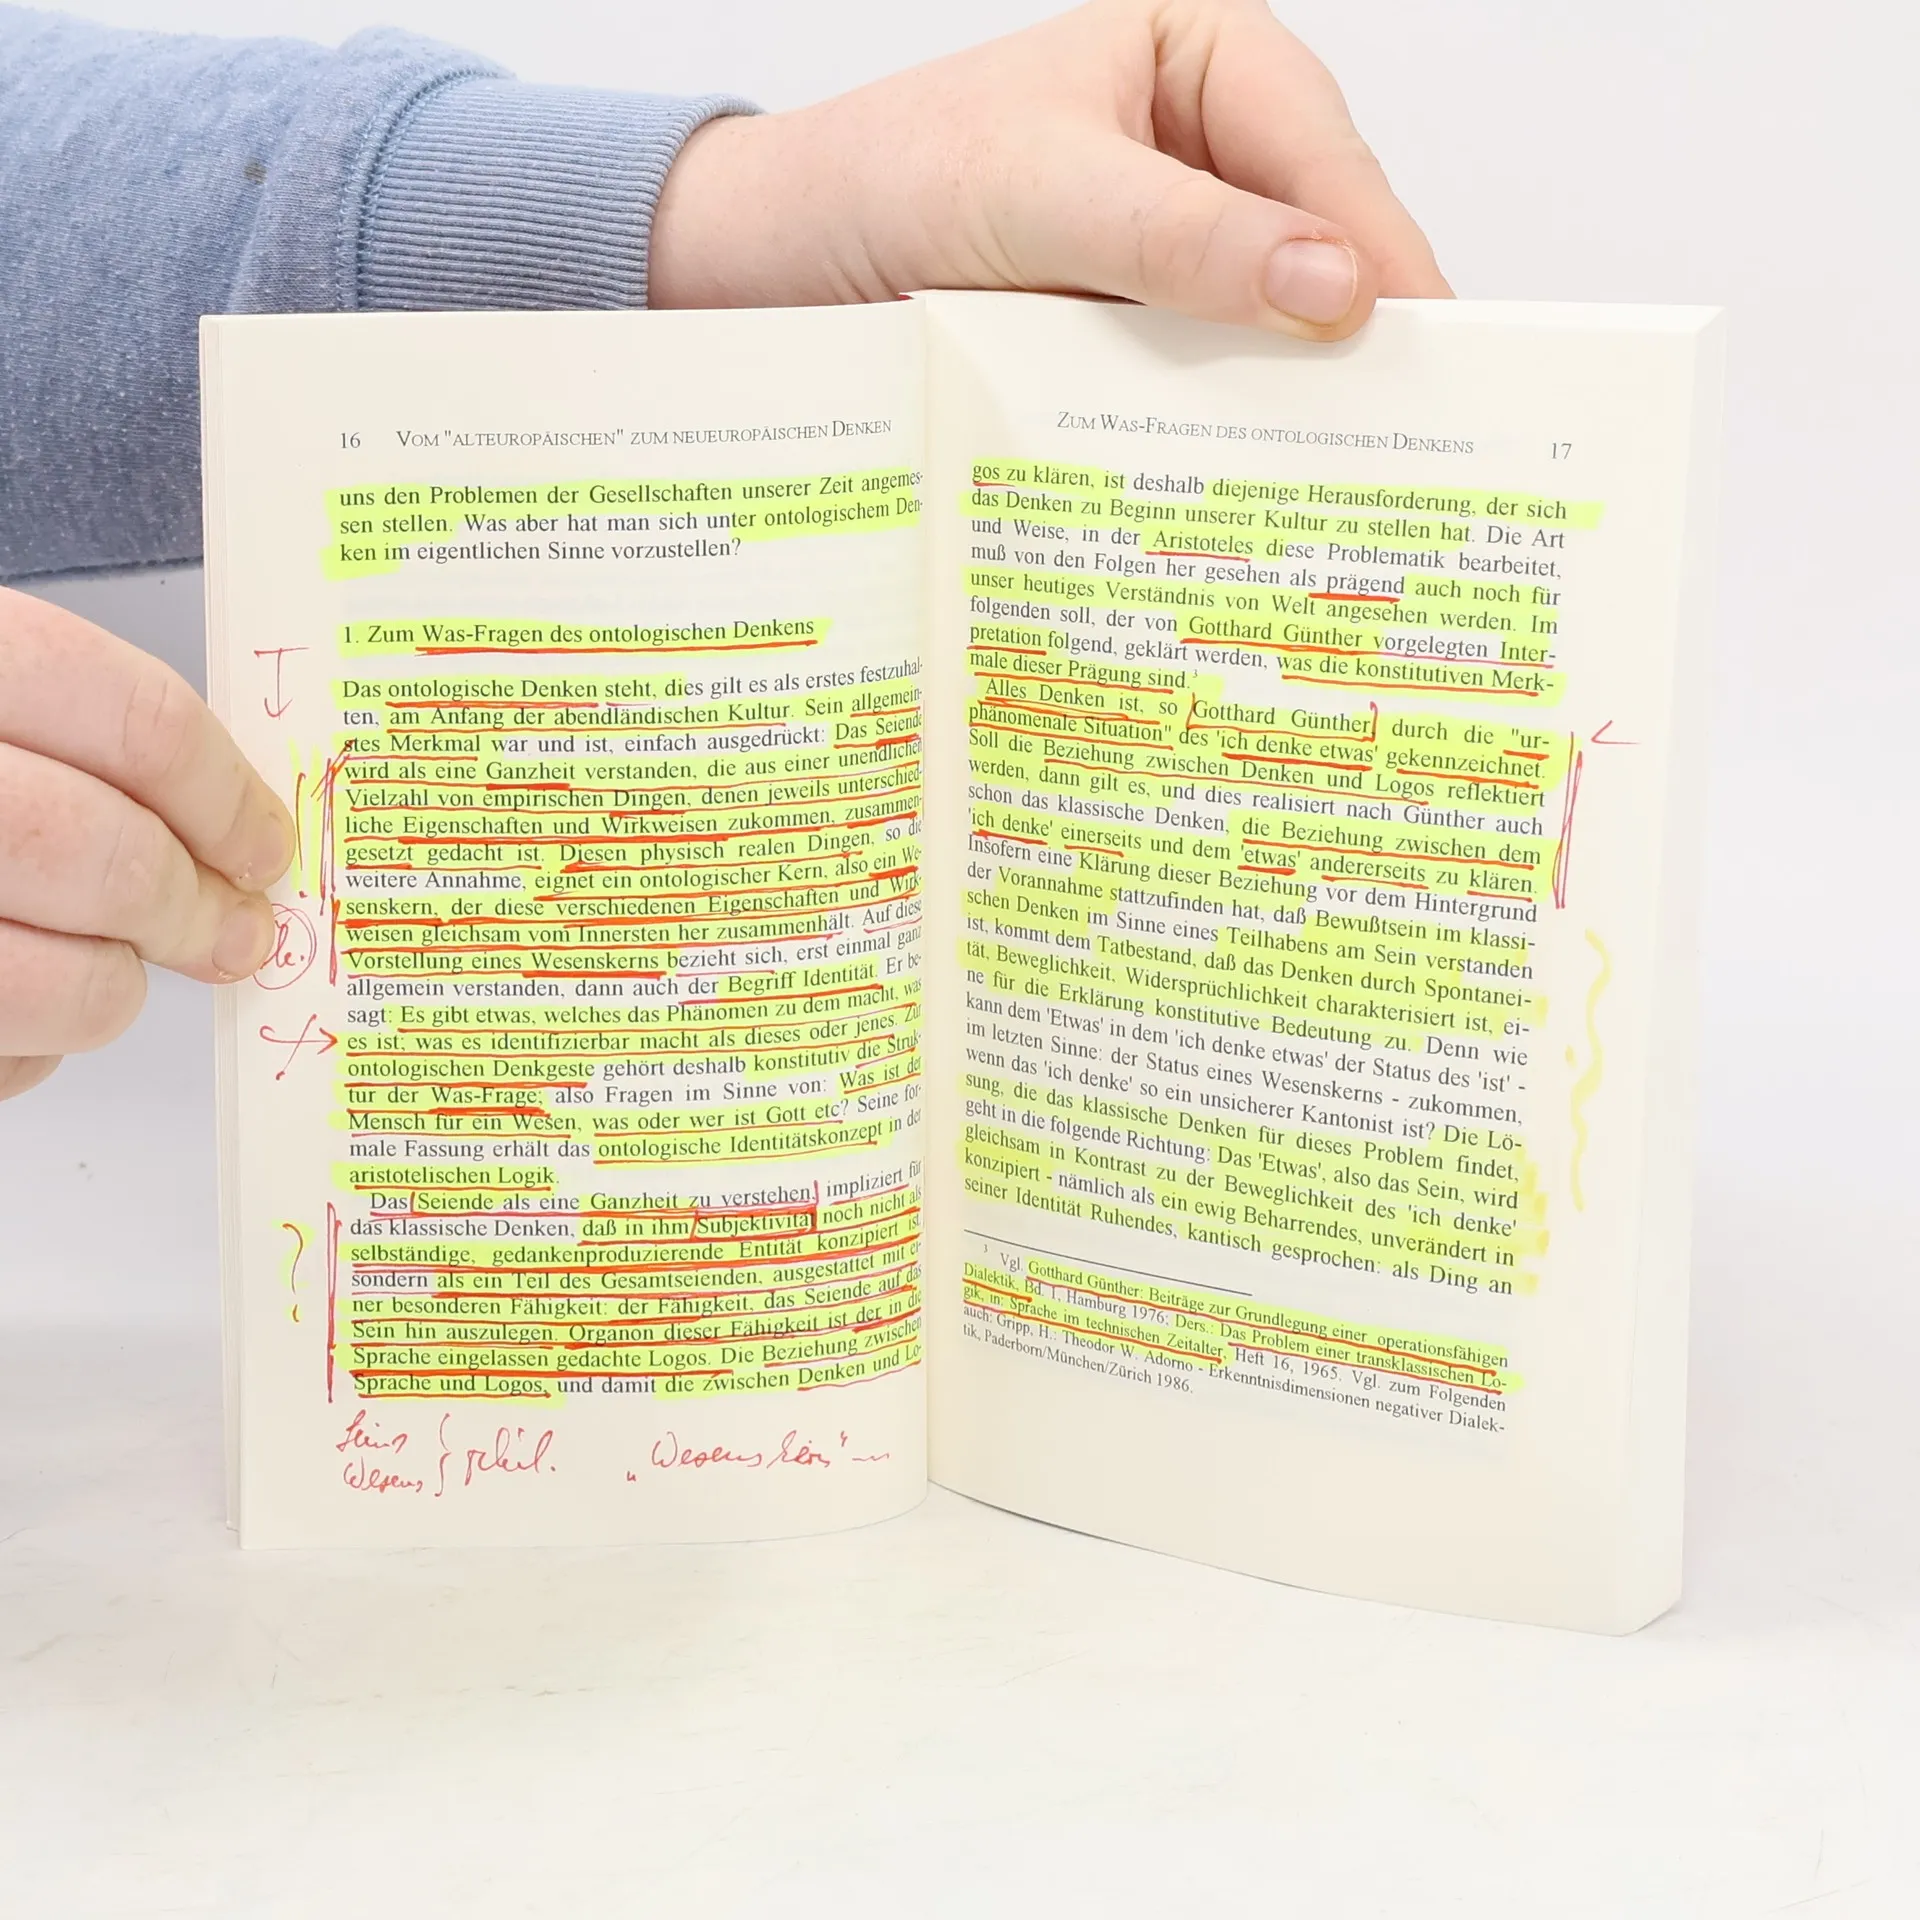 16 VOM "ALTEUROPÄISCHEN" ZUM NEUEUROPÄISCHEN DENKEN
uns den Problemen der Gesellschaften unserer Zeit angemes-
sen stellen. Was aber hat man sich unter ontologischem Den-
ken im eigentlichen Sinne vorzustellen?
1. Zum Was-Fragen des ontologischen Denkens
Das ontologische Denken steht, dies gilt es als erstes festzuhal-
ten, am Anfang der abendländischen Kultur. Sein allgemein-
stes Merkmal war und ist, einfach ausgedrückt: Das Seiende
wird als eine Ganzheit verstanden, die aus einer unendlichen
Vielzahl von empirischen Dingen, denen jeweils unterschied-
liche Eigenschaften und Wirkweisen zukommen, zusammen-
gesetzt gedacht ist. Diesen physisch realen Dingen, so die
weitere Annahme, eignet ein ontologischer Kern, also ein We-
senskern, der diese verschiedenen Eigenschaften und Wirk-
weisen gleichsam vom Innersten her zusammenhält. Auf diese
Vorstellung eines Wesenskerns bezieht sich, erst einmal ganz
allgemein verstanden, dann auch der Begriff Identität. Er be-
sagt: Es gibt etwas, welches das Phänomen zu dem macht, was
es ist; was es identifizierbar macht als dieses oder jenes. Zur
ontologischen Denkgeste gehört deshalb konstitutiv die Struk-
tur der Was-Frage; also Fragen im Sinne von: Was ist der
Mensch für ein Wesen, was oder wer ist Gott etc? Seine for-
male Fassung erhält das ontologische Identitätskonzept in der
aristotelischen Logik.
Das Seiende als eine Ganzheit zu verstehen, impliziert für
das klassische Denken, daß in ihm Subjektivität noch nicht als
selbständige, gedankenproduzierende Entität konzipiert ist,
sondern als ein Teil des Gesamtseienden, ausgestattet mit ei-
ner besonderen Fähigkeit: der Fähigkeit, das Seiende auf das
Sein hin auszulegen. Organon dieser Fähigkeit ist der in die
Sprache eingelassen gedachte Logos. Die Beziehung zwischen
Sprache und Logos, und damit die zwischen Denken und Lo-
Wesens } phil. „Wesenskern"
ZUM WAS-FRAGEN DES ONTOLOGISCHEN DENKENS 17
gos zu klären, ist deshalb diejenige Herausforderung, der sich
das Denken zu Beginn unserer Kultur zu stellen hat. Die Art
und Weise, in der Aristoteles diese Problematik bearbeitet,
muß von den Folgen her gesehen als prägend auch noch für
unser heutiges Verständnis von Welt angesehen werden. Im
folgenden soll, der von Gotthard Günther vorgelegten Inter-
pretation folgend, geklärt werden, was die konstitutiven Merk-
male dieser Prägung sind.³
Alles Denken ist, so Gotthard Günther, durch die "ur-
phänomenale Situation" des 'ich denke etwas' gekennzeichnet.
Soll die Beziehung zwischen Denken und Logos reflektiert
werden, dann gilt es, und dies realisiert nach Günther auch
schon das klassische Denken, die Beziehung zwischen dem
'ich denke' einerseits und dem 'etwas' andererseits zu klären.
Insofern eine Klärung dieser Beziehung vor dem Hintergrund
der Vorannahme stattzufinden hat, daß Bewußtsein im klassi-
schen Denken im Sinne eines Teilhabens am Sein verstanden
ist, kommt dem Tatbestand, daß das Denken durch Spontanei-
tät, Beweglichkeit, Widersprüchlichkeit charakterisiert ist, ei-
ne für die Erklärung konstitutive Bedeutung zu. Denn wie
kann dem 'Etwas' in dem 'ich denke etwas' der Status des 'ist' -
im letzten Sinne: der Status eines Wesenskerns - zukommen,
wenn das 'ich denke' so ein unsicherer Kantonist ist? Die Lö-
sung, die das klassische Denken für dieses Problem findet,
geht in die folgende Richtung: Das 'Etwas', also das Sein, wird
gleichsam in Kontrast zu der Beweglichkeit des 'ich denke'
konzipiert - nämlich als ein ewig Beharrendes, unverändert in
seiner Identität Ruhendes, kantisch gesprochen: als Ding an
³ Vgl. Gotthard Günther: Beiträge zur Grundlegung einer operationsfähigen
Dialektik, Bd. 1, Hamburg 1976; Ders.: Das Problem einer transklassischen Lo-
gik, in: Sprache im technischen Zeitalter, Heft 16, 1965. Vgl. zum Folgenden
auch: Gripp, H.: Theodor W. Adorno - Erkenntnisdimensionen negativer Dialek-
tik, Paderborn/München/Zürich 1986.